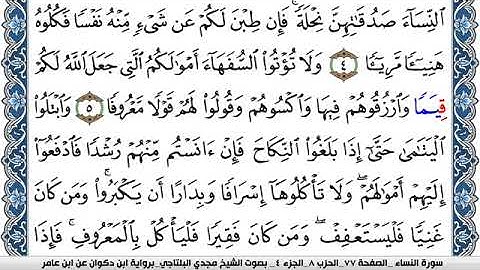 ٱلنِّسَآءَ صَدُقَٰتِهِنَّ نِحْلَةًۚ فَإِن طِبْنَ لَكُمْ عَن شَىْءٍ مِّنْهُ نَفْسًا فَكُلُوهُ
هَنِيٓـًٔا مَّرِيٓـًٔا ٤ وَلَا تُؤْتُوا۟ ٱلسُّفَهَآءَ أَمْوَٰلَكُمُ ٱلَّتِى جَعَلَ ٱللَّهُ لَكُمْ
قِيَمًا وَٱرْزُقُوهُمْ فِيهَا وَٱكْسُوهُمْ وَقُولُوا۟ لَهُمْ قَوْلًا مَّعْرُوفًا ٥ وَٱبْتَلُوا۟
ٱلْيَتَٰمَىٰ حَتَّىٰٓ إِذَا بَلَغُوا۟ ٱلنِّكَاحَ فَإِنْ ءَانَسْتُم مِّنْهُمْ رُشْدًا فَٱدْفَعُوٓا۟
إِلَيْهِمْ أَمْوَٰلَهُمْۖ وَلَا تَأْكُلُوهَآ إِسْرَافًا وَبِدَارًا أَن يَكْبَرُوا۟ۚ وَمَن كَانَ
غَنِيًّا فَلْيَسْتَعْفِفْۖ وَمَن كَانَ فَقِيرًا فَلْيَأْكُلْ بِٱلْمَعْرُوفِۚ فَإِذَا
سورة النساء _الصفحة ٧٧_ الحزب ٨_ الجزء ٤_ بصوت الشيخ مجدي البلتاجي_ برواية ابن ذكوان عن ابن عامر